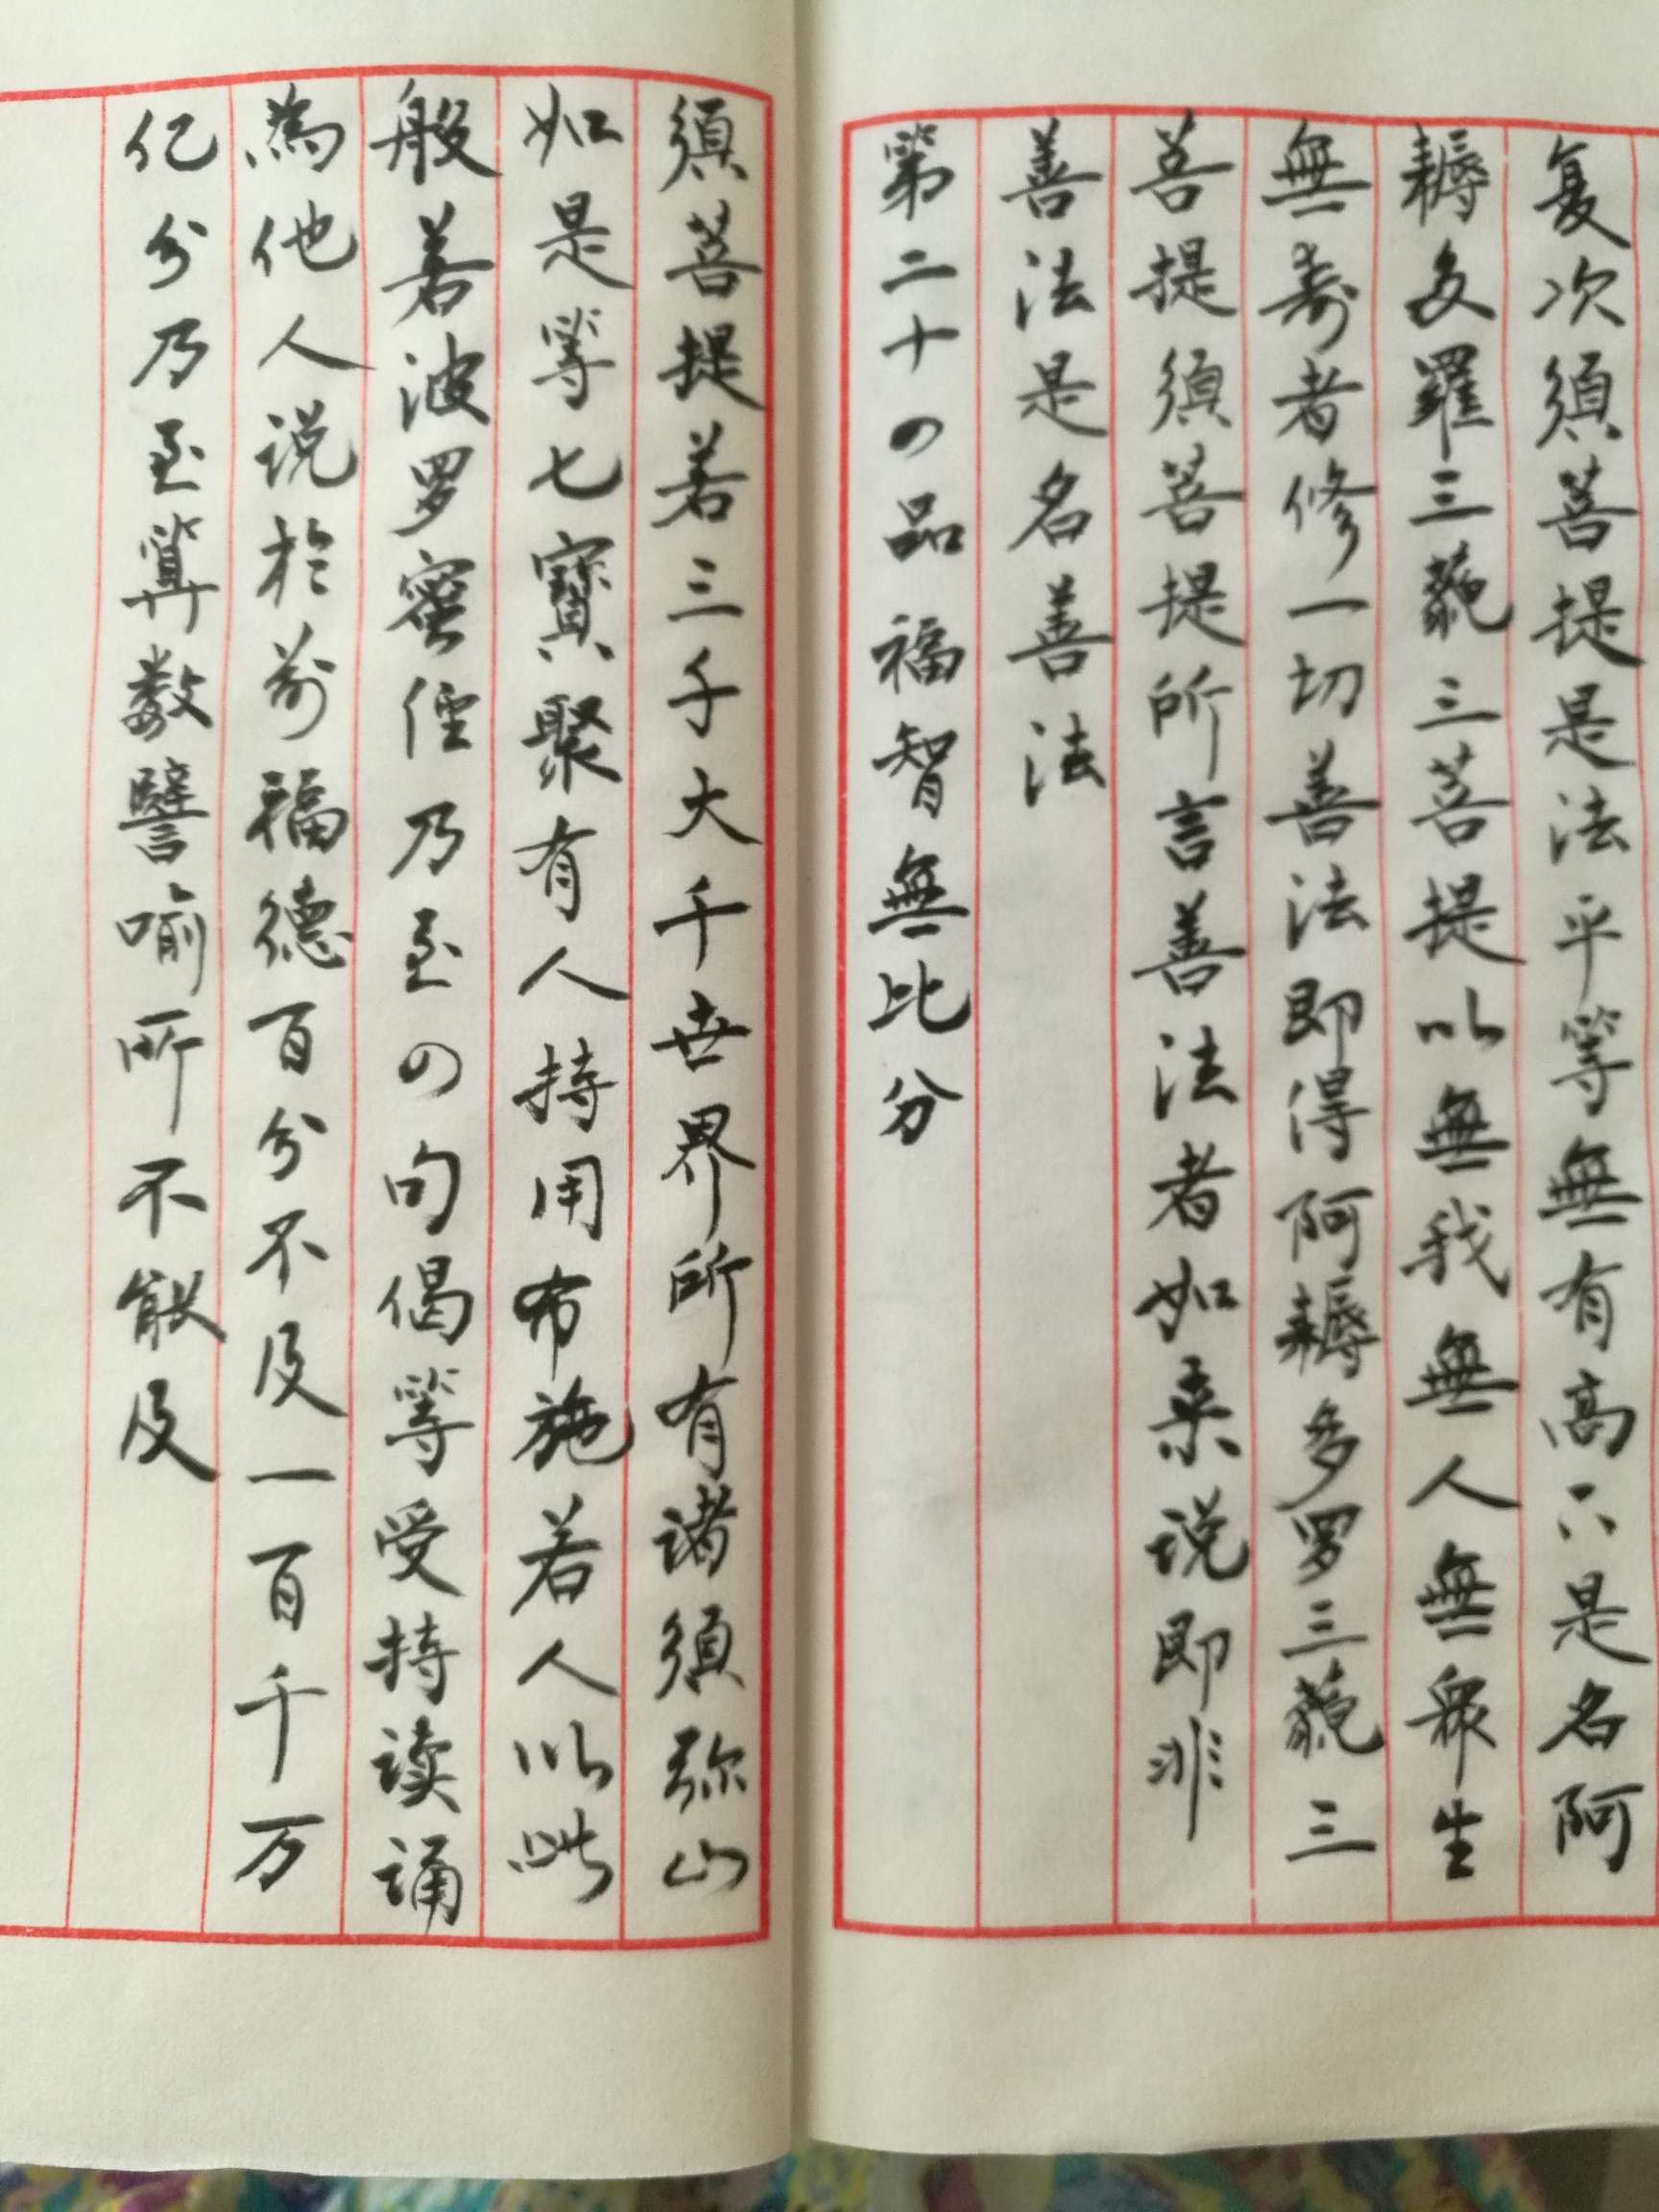 复次须菩提是法平等無有高下是名阿
耨多羅三藐三菩提以無我無人無衆生
無寿者修一切善法即得阿耨多罗三藐三
菩提須菩提所言善法者如来说即非
善法是名善法
第二十四品福智無比分
須菩提若三千大千世界所有诸須弥山
如是等七寳聚有人持用布施若人以此
般若波罗蜜经乃至四句偈等受持读诵
為他人说於前福德百分不及一百千万
亿分乃至算数譬喻所不能及